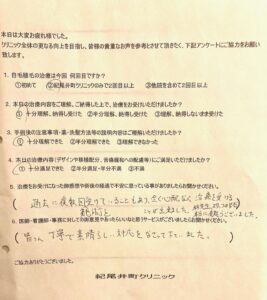 本日は大変お疲れ様でした。
クリニック全体の更なる向上を目指し、皆様の貴重なお声を参考とさせて頂きたく、下記アンケートにご協力をお願い致します。
1. 自毛植毛の治療は今回 何回目ですか?
①初めて ②紀尾井町クリニックのみで2回目以上 ③他院を含めて2回目以上
2. 本日の治療内容をご理解、ご納得した上で、治療をお受けいただけましたか?
①十分理解・納得できた ②半分理解・納得できた ③理解、納得しないまま受けた
3. 手術後の注意事項・薬・洗髪方法等の説明内容はご理解いただけましたか?
①十分理解できた ②半分理解できた ③理解できない
4. 本日の治療内容(デザインや移植配分、苦痛緩和への配慮等)にご満足いただけましたか?
①十分満足できた ②半分満足・半分不満 ③不満
5. 治療をお受けになったお時間帯や術後の経過で不安に思っている事がありましたらお聞かせください。
過去に複数回受けていることもあり、全く心配なく 治療を受ける
ことが出来ました。
6. 医師・看護師・事務に対してのお気付きやありがたいなと思うサービスがありましたらお聞かせください。
皆さん 丁寧で素晴らしい対応をなさって下さいました。
ご協力ありがとうございました。
紀尾井町クリニック